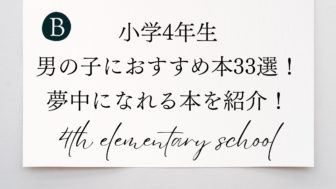 B
小学4年生
男の子におすすめ本33選！
夢中になれる本を紹介！
4th elementary school